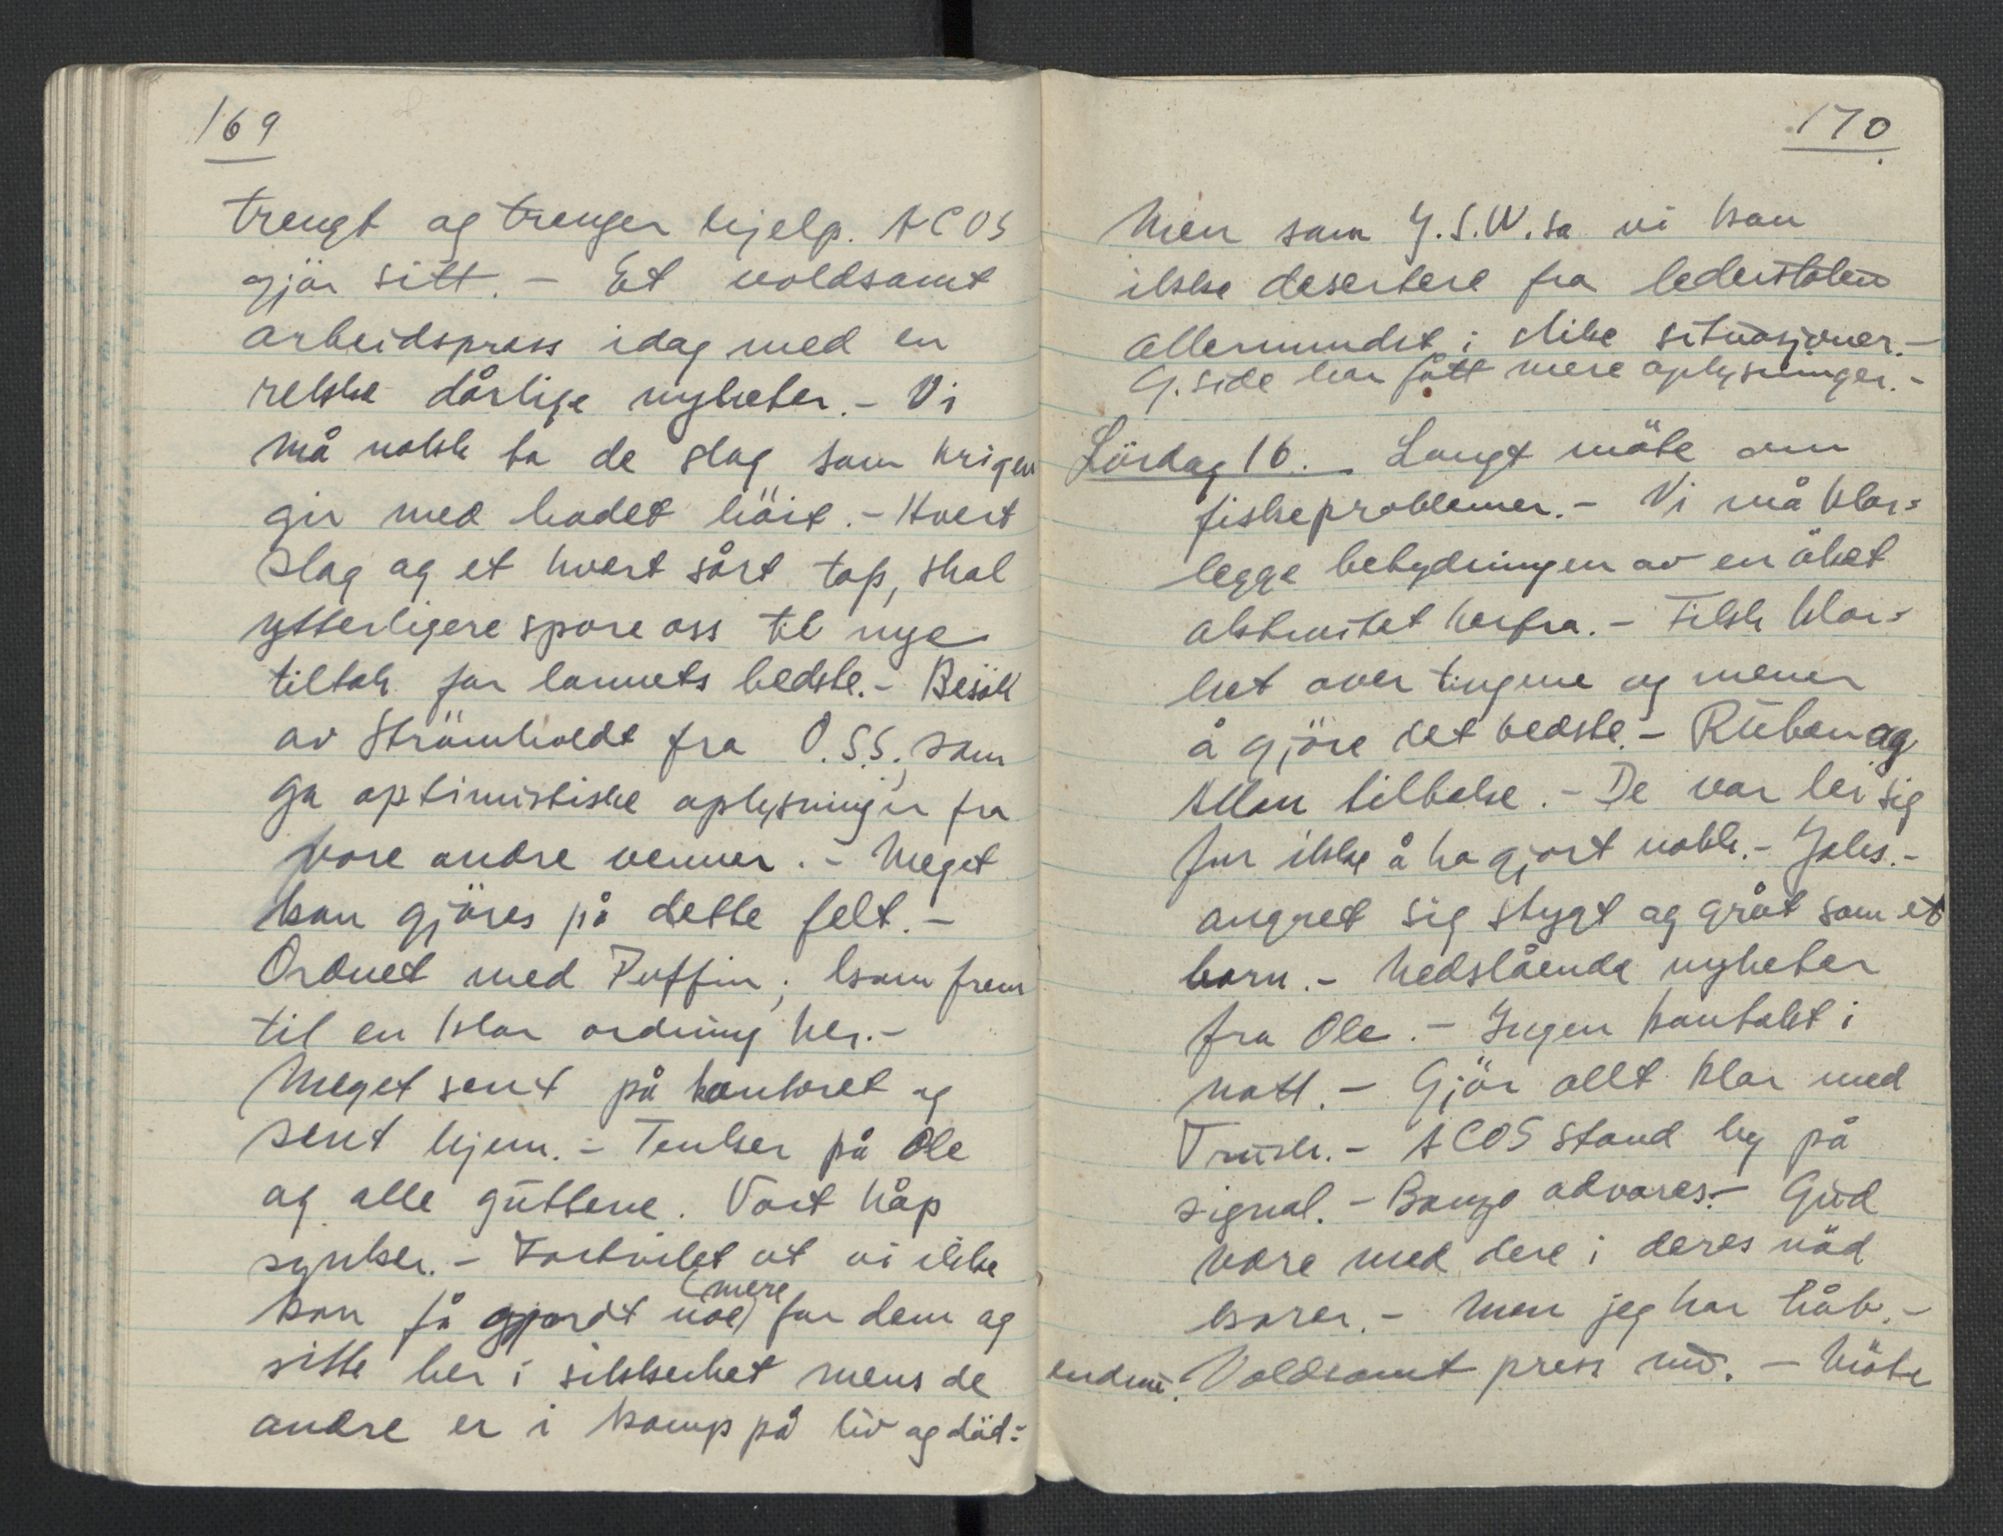 169
trengt og trenger hjelp. ACOS
gjör sitt. – Et voldsomt
arbeidspress idag med en
rekke dårlige nyheter. – Vi
må nokk ta de slag som krigen
gir med hodet höit. – Hvert
slag og et hvert sårt tap, skal
ytterligere spore oss til nye
tiltak for lannets bedste. – Besök
av Strömholdt fra O.S.S., som
ga optimistiske oplysninger fra
vore andre venner. – Meget
kan gjöres på dette felt. –
Ordnet med Puffin; kom frem
til en klar ordning her. –
Meget sent på kontoret og
sent hjem. – Tenker på Ole
og alle guttene. Vort håp
synker. – Fortvilet at vi ikke
kan få gjordt noe (mere) for dem og
sitte her i sikkerhet mens de
andre er i kamp på liv og död –
170
Men som J.S.W. sa vi kan
ikke desertere fra lederstolen
allermindst i slike situasjoner. –
G. side har fått mere oplysninger. –
Lördag 16. Langt möte om
fiskeproblemer. – Vi må klar=
legge betydningen av en öket
aktivitet herfra. – Fikk klar=
het over tingene og mener
å gjöre det bedste. – Ruben og
Allan tilbake. – De var lei sig
for ikke å ha gjort nokk. – Jaks. –
angret sig stygt og gråt som et
barn. – Nedslående nyheter
fra Ole. – Ingen kontakt i
natt. – Gjör allt klar med
Trush. – ACOS stand by på
signal. – Bonzo advares. – Gud
være med dere i deres nöd
karer. – Men jeg har håb. –
endnu. Voldsomt press nu. – Möte